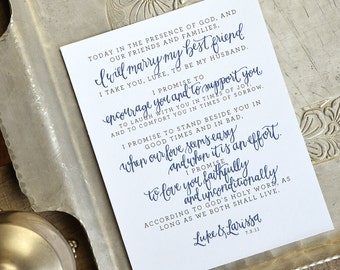 TODAY IN THE PRESENCE OF GOD, AND
OUR FRIENDS AND FAMILIES,
I will marry my best friend
I TAKE YOU, LUKE, TO BE MY HUSBAND.
I PROMISE TO
encourage you and to support you
TO LAUGH WITH YOU IN TIMES OF JOY,
AND TO COMFORT YOU IN TIMES OF SORROW.
I PROMISE TO STAND BESIDE YOU IN
GOOD TIMES AND IN BAD,
when our love seems easy
and when it is an effort.
I PROMISE
to love you faithfully
and unconditionally
ACCORDING TO GOD'S HOLY WORD, AS
LONG AS WE BOTH SHALL LIVE.
Luke & Larissa
7.3.11